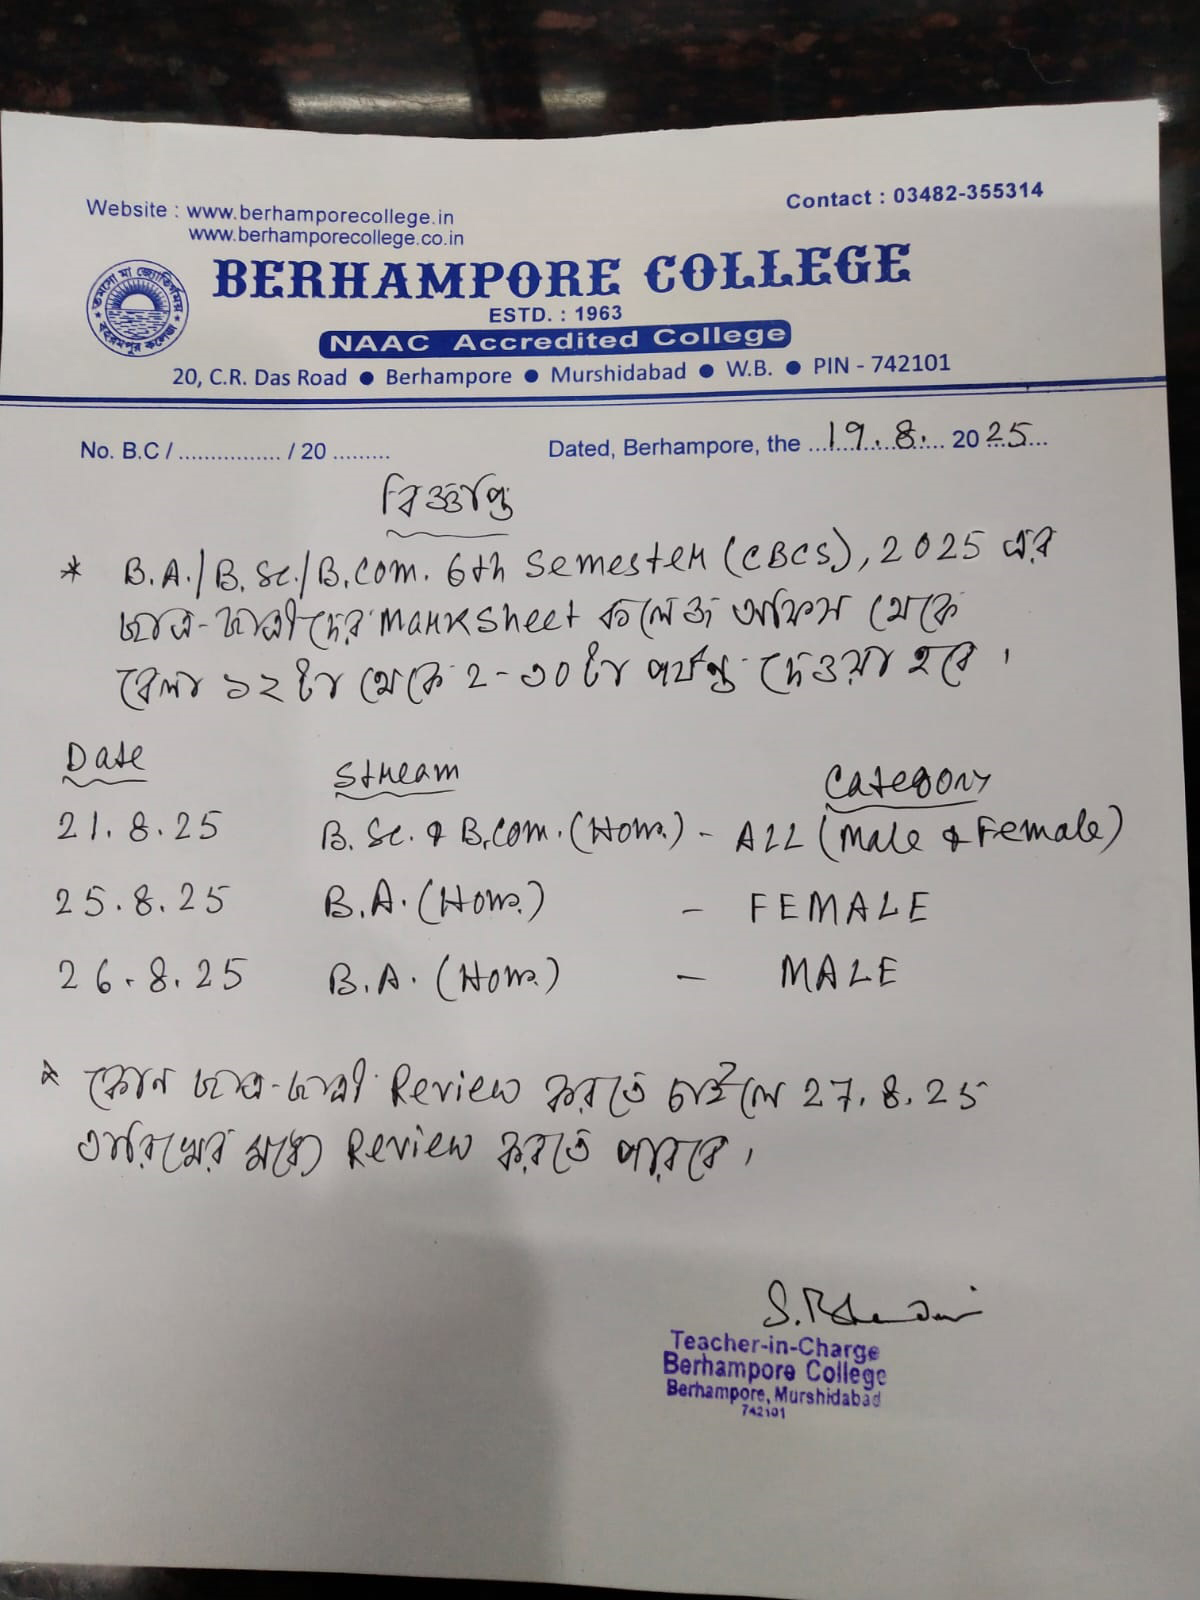 Website : www.berhamporecollege.in
www.berhamporecollege.co.in
Contact : 03482-355314
তমসো মা জ্যোতির্গময়
বহরমপুর কলেজ
BERHAMPORE COLLEGE
ESTD. : 1963
NAAC Accredited College
20, C.R. Das Road ● Berhampore ● Murshidabad ● W.B. ● PIN - 742101
No. B.C / ................. / 20 .........
Dated, Berhampore, the 19.8. 2025
বিজ্ঞপ্তি
* B.A./B.Sc./B.Com. 6th Semester (CBCS), 2025 এর
ছাত্র-ছাত্রীদের Marksheet কলেজ অফিস থেকে
বেলা ১২ টা থেকে 2-৩০ টা পর্যন্ত দেওয়া হবে।
Date Stream Category
21.8.25 B.Sc. & B.Com. (Hons.) - ALL (Male & Female)
25.8.25 B.A. (Hons.) - FEMALE
26.8.25 B.A. (Hons.) - MALE
* কোন ছাত্র-ছাত্রী Review করতে চাইলে 27.8.25
তারিখের মধ্যে Review করতে পারবে।
Teacher-in-Charge
Berhampore College
Berhampore, Murshidabad
742101